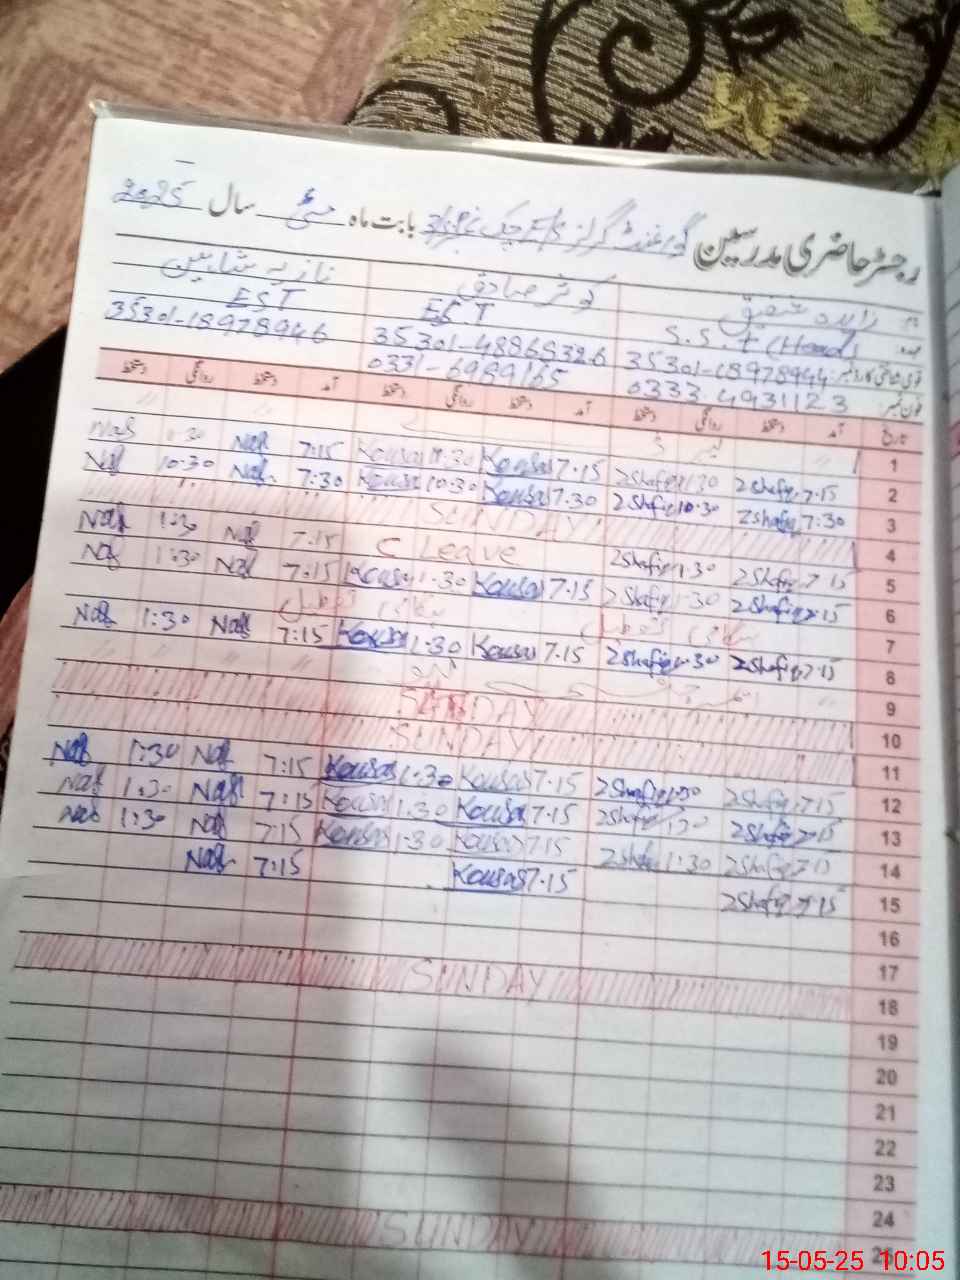 رجسٹر حاضری مدرسین گورنمنٹ گرلز E/S چک بابت ماہ مئی سال 2025
زاہدہ شفیق کوثر صادق نازیہ شاہین
S.S.t (Head) EST EST
قومی شناختی کارڈ نمبر: 35301-18978944 35301-4886532.6 35301-18978946
فون نمبر: 0333.4931123 0331-6989165
تاریخ آمد دستخط روانگی دستخط آمد دستخط روانگی دستخط آمد دستخط روانگی دستخط
1
2 7:15 ZShafiq 1:30 ZShafiq 7.15 Kousar Kousar 7:15 Naf 1:30 Naf
3 7:30 ZShafiq 10:30 ZShafiq 7.30 Kousar 10:30 Kousar 7:30 Naf 10:30 Naf
4 SUNDAY
5 7:15 ZShafiq 1:30 ZShafiq C Leave 7:15 Naf 1:30 Naf
6 7:15 ZShafiq 1:30 ZShafiq 7.15 Kousar 1:30 Kousar 7:15 Naf 1:30 Naf
7 مقامی تعطیل مقامی تعطیل
8 7:15 ZShafiq 1:30 ZShafiq 7.15 Kousar 1:30 Kousar 7:15 Naf 1:30 Naf
9
10 SUNDAY
11 SUNDAY
12 7:15 ZShafiq 1:30 ZShafiq 7.15 Kousar 1:30 Kousar 7:15 Naf 1:30 Naf
13 7:15 ZShafiq 1:30 ZShafiq 7.15 Kousar 1:30 Kousar 7:15 Naf 1:30 Naf
14 7:15 ZShafiq 1:30 ZShafiq 7.15 Kousar 1:30 Kousar 7:15 Naf 1:30 Naf
15 7:15 ZShafiq 7.15 Kousar 7:15 Naf
16
17
18 SUNDAY
19
20
21
22
23
24
25 SUNDAY
15-05-25 10:05